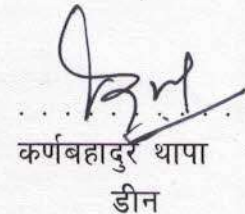 कर्णबहादुर थापा
डीन